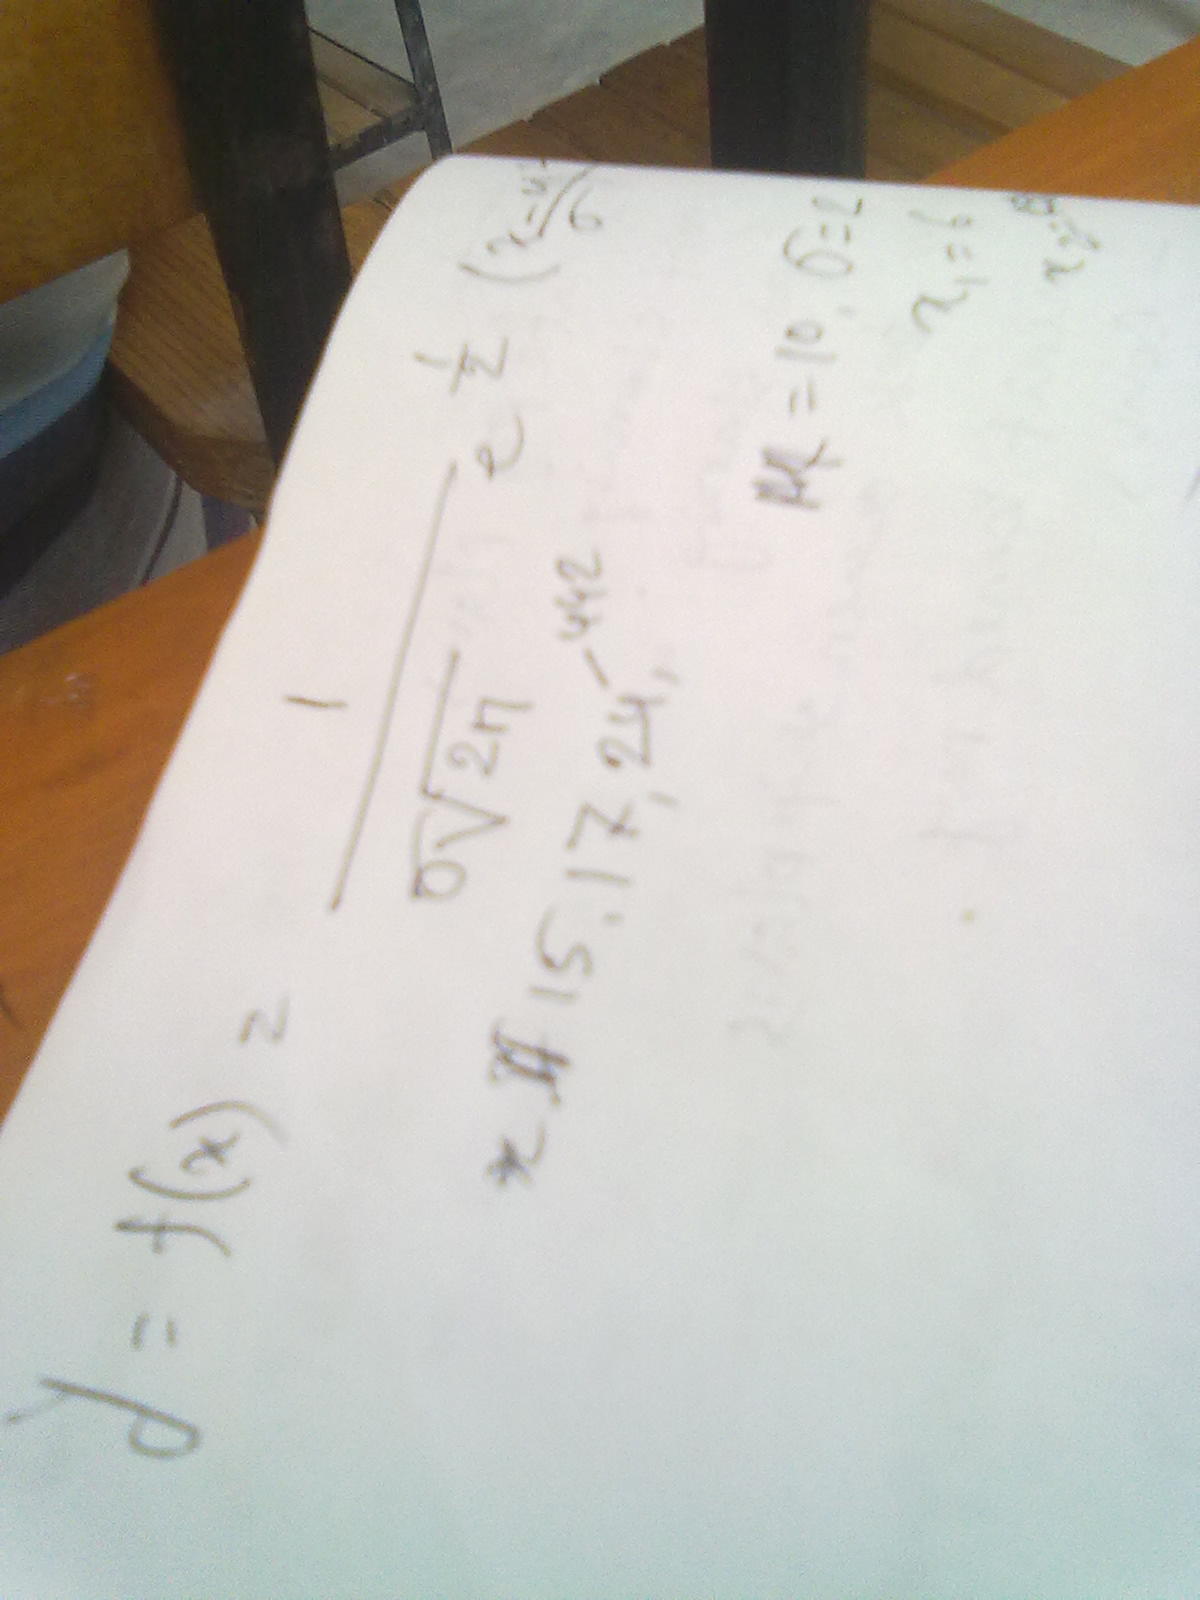 y = f(x) = 1/σ√2π e 1/2 (x-μ/σ
x 15, 17, 24, -442
μ = 10, σ = 2
x₁ = 6
x₂ =